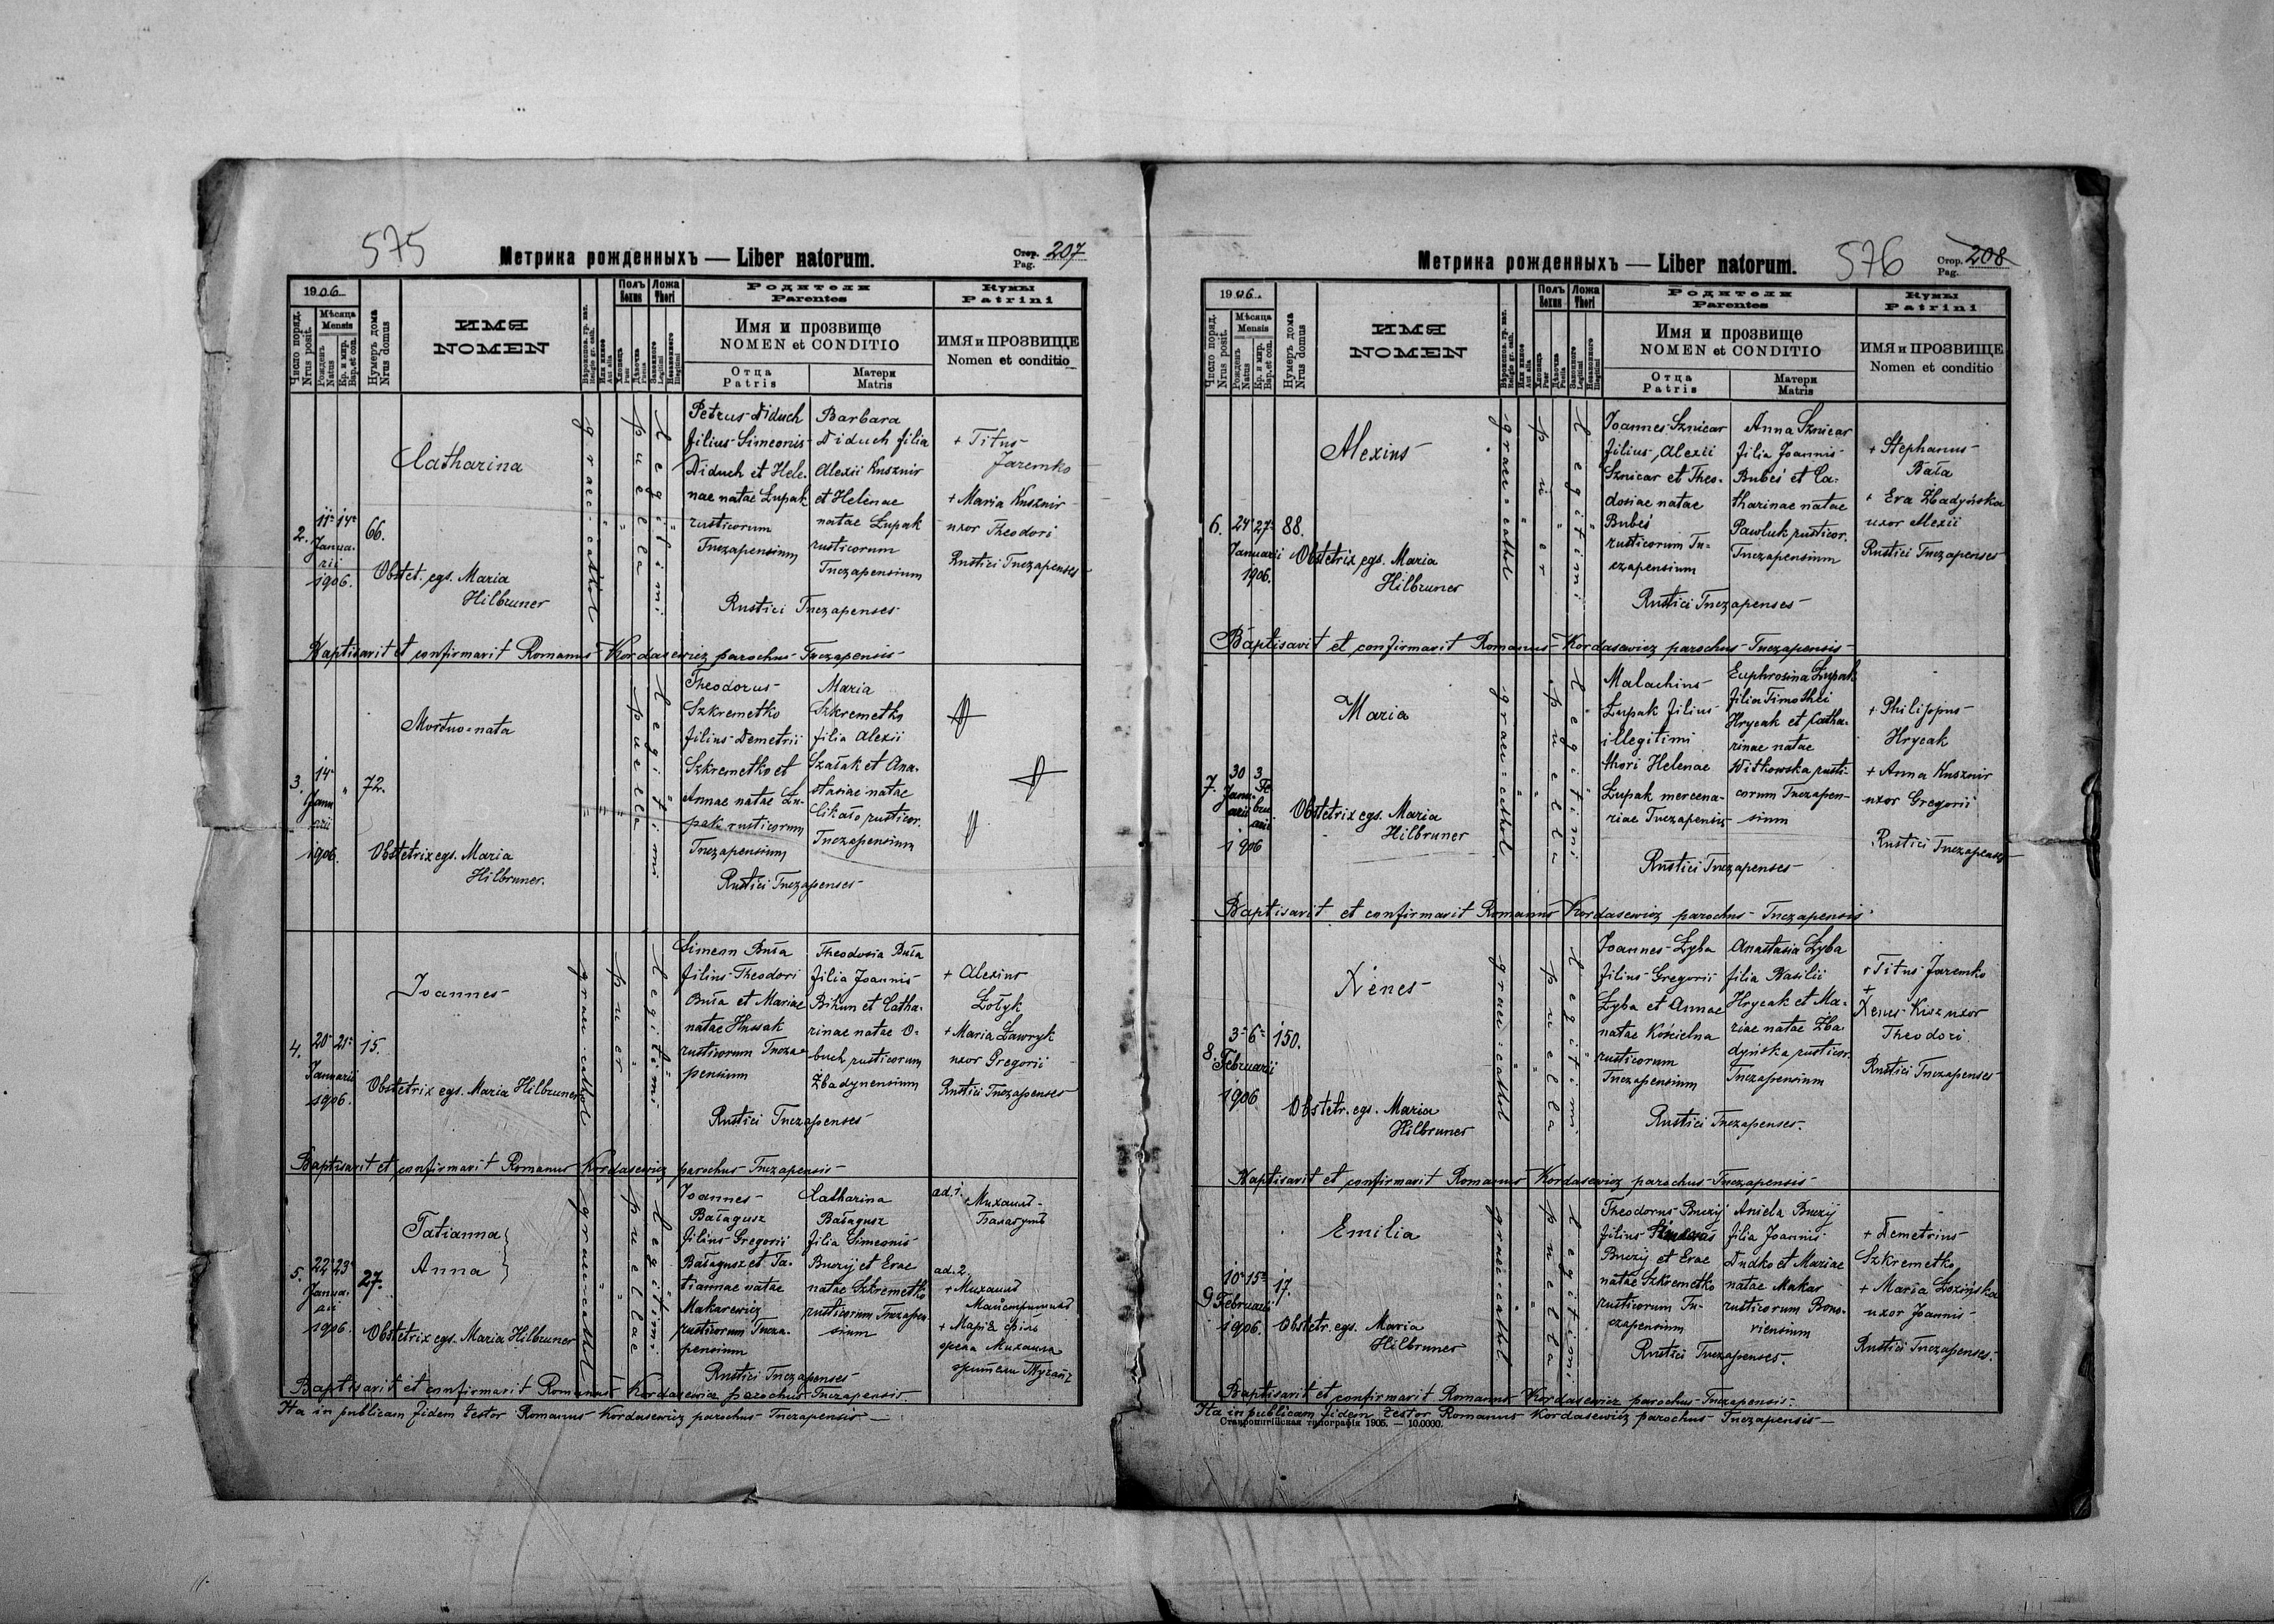 575
Метрика рожденныхъ — Liber natorum.
Стор. Pag. 207
1906
Число поряд. Nrus posit.
Мѣсяца Mensis
Рожденъ Natus
Кр. и мир. Bap. et con.
Нумеръ дома Nrus domus
ИМЯ
NOMEN
Полъ
Ложа Thori
Родители
Parentes
Имя и прозвище
NOMEN et CONDITIO
Отца Patris
Матери Matris
Кумы
Patrini
ИМЯ и ПРОЗВИЩЕ
Nomen et conditio
2.
11 14
Janua-
rii
1906.
66.
Catharina
Obstet. egs. Maria
Hilbruner
graec-cathol
puella
Legitimi
Petrus Diduch
filius Simeonis
Diduch et Hele-
nae natae Łupak
rusticorum
Tuczapensium
Barbara
Diduch filia
Alexii Kusznir
et Helenae
natae Łupak
rusticorum
Tuczapensium
Rustici Tuczapenses
+ Titus
Jaremko
+ Maria Kusznir
uxor Theodori
Rustici Tuczapenses
Baptisavit et confirmavit Romanus Kordasewicz parochus Tuczapensis
3.
14
Janu
arii
1906.
"
72.
Mortuo-nata
Obstetrix egs. Maria
Hilbruner.
puella
Legitimi
Theodorus
Szkremetko
filius Demetrii
Szkremetko et
Annae natae Łu-
pak rusticorum
Tuczapensium
Maria
Szkremetko
filia Alexii
Szałak et Ana-
stasiae natae
rusticor.
Tuczapensium
Rustici Tuczapenses
4.
20 21
Januarii
1906.
15.
Joannes
Obstetrix egs. Maria Hilbruner
graeci-cathol
puer
Legitimi
Simeon Buła
filius Theodori
Buła et Mariae
natae Hussak
rusticorum Tucza-
pensium
Theodosia Buła
filia Joannis
Bikun et Catha-
rinae natae O-
buch rusticorum
Żbadynensium
Rustici Tuczapenses
+ Alexius
Żołyk
+ Maria Ławryk
uxor Gregorii
Rustici Tuczapenses
Baptisavit et confirmavit Romanus Kordasewicz parochus Tuczapensis
5.
22 23
Janua-
rii
1906.
27.
Tatianna
Anna
Obstetrix egs. Maria Hilbruner
graeci-cathol
puellae
Legitimi
Joannes
Bałagusz
filius Gregorii
Bałagusz et Ta-
tiannae natae
Makarewicz
rusticorum Tucza-
pensium
Catharina
Bałagusz
filia Simeonis
Buczyj et Evae
natae Szkremetko
rusticorum Tuczapen-
sium
Rustici Tuczapenses
ad. 1.
Михаилъ
ad. 2.
+ Михаилъ
+ Марія
Михаила
Baptisavit et confirmavit Romanus Kordasewicz parochus Tuczapensis.
Ita in publicam fidem testor Romanus Kordasewicz parochus Tuczapensis
Метрика рожденныхъ — Liber natorum.
576
Стор. Pag. 208
1906.
Число поряд. Nrus posit.
Мѣсяца Mensis
Рожденъ Natus
Кр. и мир. Bap. et con.
Нумеръ дома Nrus domus
ИМЯ
NOMEN
Полъ
Ложа Thori
Родители
Parentes
Имя и прозвище
NOMEN et CONDITIO
Отца Patris
Матери Matris
Кумы
Patrini
ИМЯ и ПРОЗВИЩЕ
Nomen et conditio
6.
24 27
Januarii
1906.
88.
Alexius
Obstetrix egs. Maria
Hilbruner
graeci-cathol
puer
Legitimi
Joannes Sznicar
filius Alexii
Sznicar et Theo-
dosiae natae
Bubeś
rusticorum Tu-
czapensium
Anna Sznicar
filia Joannis
Bubeś et Ca-
tharinae natae
Pawluk rusticor.
Tuczapensium
Rustici Tuczapenses
+ Stephanus
Bała
+ Eva Żbadyńska
uxor Alexii
Rustici Tuczapenses
Baptisavit et confirmavit Romanus Kordasewicz parochus Tuczapensis
7.
30
Janu-
arii
3
Fe
bru
arii
1906
Maria
Obstetrix egs. Maria
Hilbruner
graeci-cathol
puella
Legitimi
Malachius
Łupak filius
illegitimi
thori Helenae
Łupak mercena-
riae Tuczapensis
Euphrosina Łupak
filia Timothei
Hrycak et Catha-
rinae natae
Witkowska rusti-
corum Tuczapen-
sium
Rustici Tuczapenses
+ Philippus
Hrycak
+ Anna Kusznir
uxor Gregorii
Rustici Tuczapenses
Baptisavit et confirmavit Romanus Kordasewicz parochus Tuczapensis
8.
3 6
Februarii
1906
150.
Xenes
Obstetr. egs. Maria
Hilbruner
graeci-cathol
puella
Legitimi
Joannes Łyba
filius Gregorii
Łyba et Annae
natae Kościelna
rusticorum
Tuczapensium
Anastasia Łyba
filia Wasilii
Hrycak et Ma-
riae natae Żba-
dyńska rusticor.
Tuczapensium
Rustici Tuczapenses.
+ Titus Jaremko
+
Xenes Kisz uxor
Theodori
Rustici Tuczapenses
Baptisavit et confirmavit Romanus Kordasewicz parochus Tuczapensis
9
10 15
Februarii
1906.
17.
Emilia
Obstetr. egs. Maria
Hilbruner
graeci-cathol.
puella
Legitimi
Theodorus Buczyj
filius
Buczyj et Evae
natae Szkremetko
rusticorum Tu-
czapensium
Aniela Buczyj
filia Joannis
Dudko et Mariae
natae Makar
rusticorum Bono-
viensium
Rustici Tuczapenses.
+ Demetrius
Szkremetko
+ Maria Łozińska
uxor Joannis
Rustici Tuczapenses.
Baptisavit et confirmavit Romanus Kordasewicz parochus Tuczapensis.
Ita in publicam fidem testor Romanus Kordasewicz parochus Tuczapensis
Ставропигійская типографія 1905. — 10.0000.